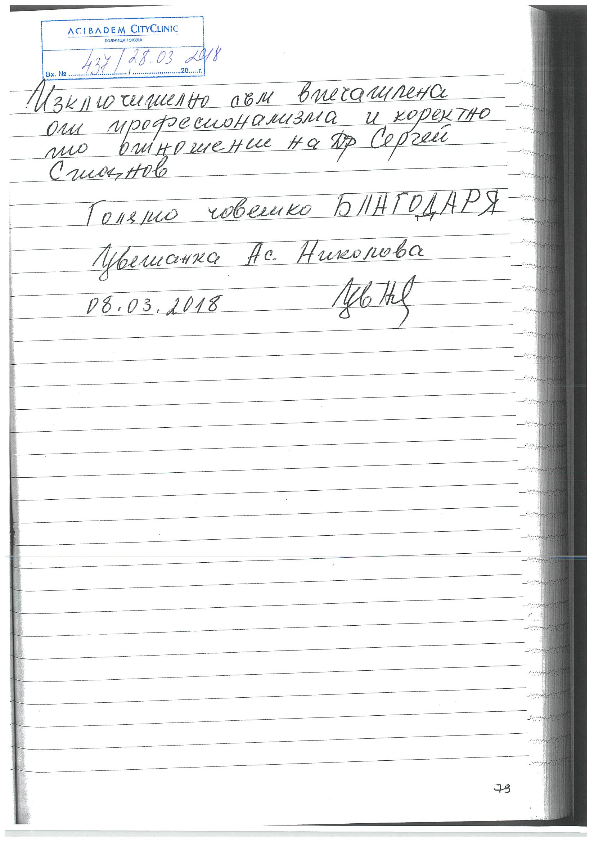 ACIBADEM CITYCLINIC
БОЛНИЦА ТОКУДА
Вх. № 437 / 28.03 2018 г.
Изключително съм впечатлена
от професионализма и коректно
то отношение на Др Сергей
Стоянов
Голямо човешко БЛАГОДАРЯ
Цветанка Ас. Николова
08.03.2018
79